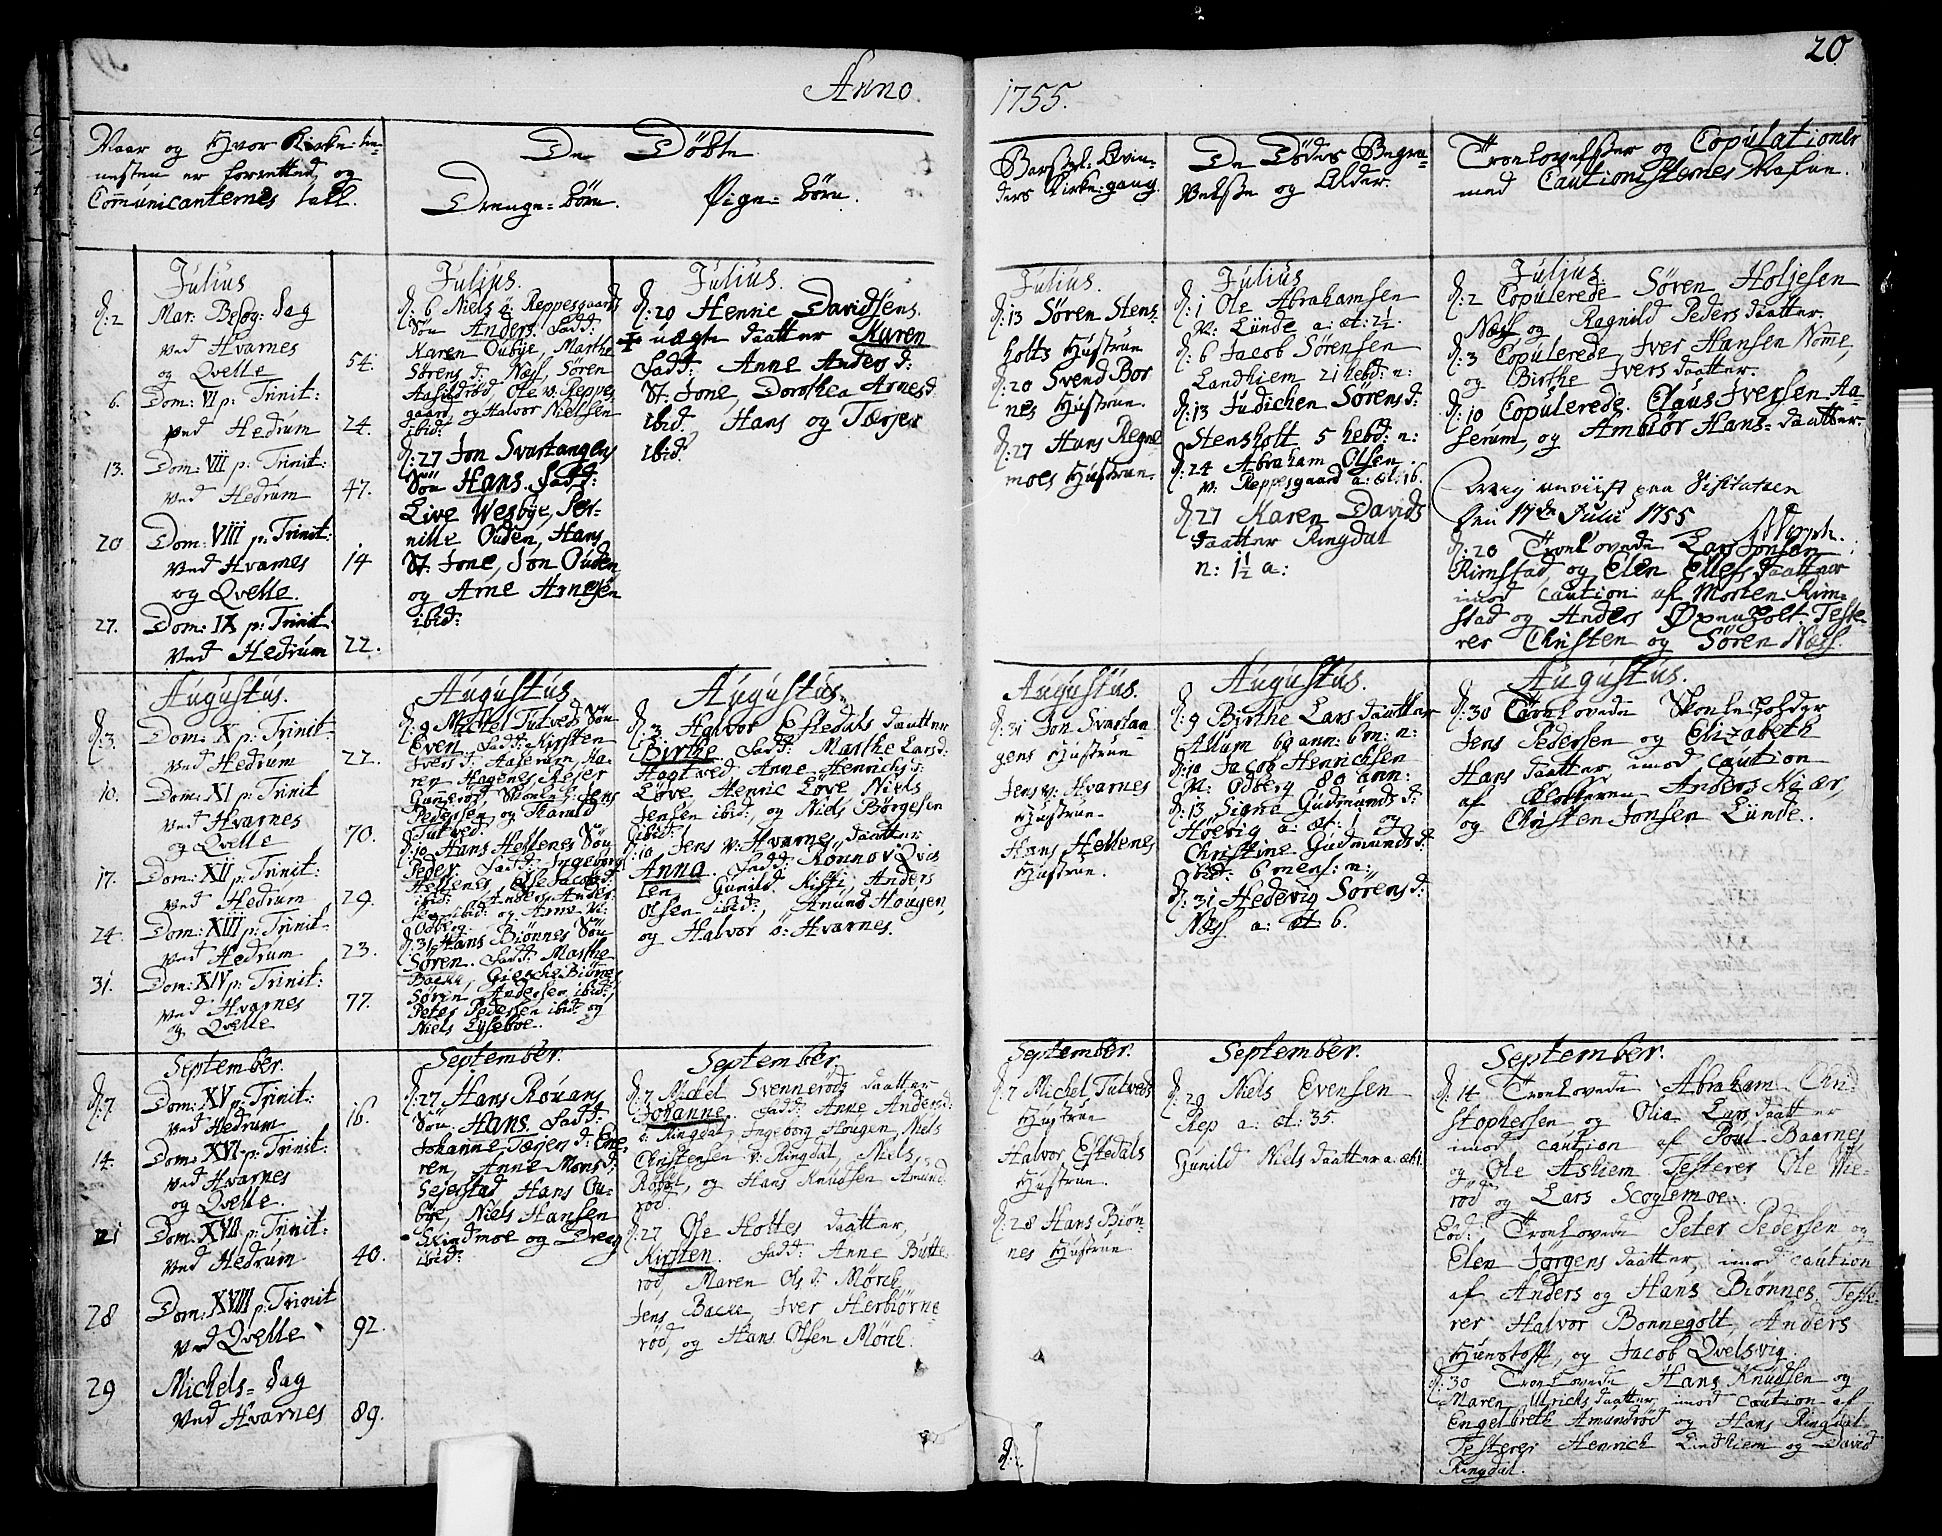 20
Anno
1755.
Naar og Hvor Kirke-tie-
nesten er forrettet, og
Communicanternes tall.
De Döbte
Drenge-börn.
Pige-börn.
Barsel-Qvin-
ders Kirke-gang
De Dödes Begra-
velse og Alder.
Trolovelser og Copulationer
med Cautionisternes Nafne.
Julius
d: 2 Mar: Besög: dag
ved Hvarnes
og Qvelle 54.
6. Dom: VI p: Trinit:
ved Hedrum 24.
13. Dom: VII p: Trinit:
ved Hedrum 47.
20 Dom: VIII p: Trinit:
ved Hvarnes 14
og Qvelle.
27. Dom: IX p: Trinit
ved Hedrum 22.
Julius.
d: 6 Niels ö: Reppesgaards
Sön Anders. fadd:
Karen Oubye, Marthe
Sörens d: Næss, Sören
Aasildröd, Ole v: Reppes
gaard, og Halvor Nielsen
ibid:
d: 27 Jon Svartangens
Sön Hans. fadd:
Live Wesbye, Per-
nille Ouden, Hans
St: Jone, Jon Ouden
og Arne Arnesen
ibid:
Julius.
d: 20 Henric Davidsens
uægte daatter Karen
fadd: Anne Anders d:
St: Jone, Dorothea Arnes d
ibid, Hans og Tærjer
ibid:
Julius.
d: 13 Sören Stens-
holts Hustrue
d: 20 Svend Bor
nes Hustrue.
d: 27 Hans Regne
moes Hustrue.
Julius
d: 1 Ole Abrahamsen
V: Lünde a: æt: 2½.
d: 6 Jacob Sörensen
Landhiem 21 hebd: n:
d: 13 Judichen Sörens d:
Stensholt 5 hebd: n:
d: 24 Abraham Olsen
v: Reppesgaard a: æt: 16.
d 27 Karen Davids
daatter Ringdal
n: 1½ a:
Julius
d: 2 Copulerede Sören Holjesen
Næss og Ragnild Peders daatter.
d: 3 Copulerede Iver Hansen Nome,
og Birthe Ivers daatter.
d: 10 Copulerede Claus Iversen Aa-
serum, og Ambiör Hans-daatter.
paa Visitatsen
den 17de Julii 1755
d: 20 Trolovede Lars Jonsen
Rimstad, og Elen Ellefs daatter
imod caution af Morten Rim-
stad og Anders Øxenholt. Teste-
rer Christen og Sören Næss.
Augustus.
d: 3. Dom: X p: Trinit
ved Hedrum 22.
10. Dom: XI p: Trinit
ved Hvarnes
og Qvelle 70.
17. Dom: XII p: Trinit:
ved Hedrum 29.
24. Dom: XIII p: Trinit.
ved Hedrum 23.
31. Dom: XIV p: Trinit:
ved Hvarnes 77.
og Qvelle
Augustus.
d: 3 Michel Tutveds Sön
Even fadd: Kirsten
Ivers d: Aaserum, Ka-
ren Hagenes, Reier
Gunneröd, Skoleh: Jens
Pedersen, og Harald
Tutved.
d: 10 Hans Hellenes Sön
Peder. fadd: Ingeborg
Hellenes, Else Jacobs d:
ibid: Anders Ander-
sen ibid: og Arne V:
Odberg.
d: 31 Hans Biönnes Sön
Sören. fadd: Marthe
Backe, Gieche Biönnes
Sören Andersen ibid:,
Peter Pedersen ibid: og
Niels Lysseboe.
Augustus.
d: 3. Halvor Estedals daatter
Birthe fadd: Marthe Lars d:
Hogtved Anne Henrichs d:
Löve, Henric Löve, Niels
Jensen ibid:, og Niels Börgesen
ibid:
d: 10 Jens v: Hvarnes daatter
Anna. fadd: Rönnov Qvis
len, Gunild Kisti, Anders
Olsen ibid:, Anund Hougen,
og Halvor ö: Hvarnes.
Augustus.
d: 31 Jon Svartan
gens Hustrue
Jens v: Hvarnes
Hustrue.
Hans Hellenes
Hustrue.
Augustus.
d: 9 Birthe Lars daatter
Allum 69 ann: 6 m: n:
d: 10 Jacob Henrichsen
V: Odberg 80 ann:
d: 13 Signe Gudmunds d:
Hoevig a: æt: 1 og
Christine Gudmunds d:
ibid: 6 mens: n:
d: 31 Hedevig Sörens d:
Næss. a: æt 6.
Augustus.
d: 30 Trolovede Skoleholder
Jens Pedersen og Elizabeth
Hans daatter imod caution
af Klockeren Anders Kiær,
og Christen Jonsen Lünde.
September.
d: 7. Dom: XV p: Trinit:
ved Hedrum 16.
14. Dom: XVI p: Trinit:
ved Hvarnes
og Qvelle.
21 Dom: XVII p: Trinit:
ved Hedrum 40.
28 Dom: XVIII p: Trinit
ved Qvelle 92.
29 Michels-dag
ved Hvarnes 89.
September.
d: 27 Hans Rövans
Sön Hans. fadd:
Johanne Tærjer d: Ene-
ren, Anne Mons d:
Sejerstad, Hans Ou-
bye, Niels Hansen
Skindmoe og Dreng
ibid:
September,
d: 7 Michel Svenneröds daatter
Johanne. fadd: Anne Anders d:
ö: Ringdal, Ingeborg Hougen, Niels
Christensen v: Ringdal, Niels
Röböl, og Hans Knudsen Amund
röd.
d: 27 Ole Holtes daatter,
Kirsten. fadd: Anne Bütte
röd, Maren Ols d: Mörch,
Jens Backe, Iver Herbiörns
röd, og Hans Olsen Mörch.
September.
d: 7 Michel Tutveds
Hustrue
Halvor Estedals
Hustrue.
d: 28 Hans Biön-
nes Hustrue
September.
d: 29 Niels Evensen
Rep a: æt: 35.
Gunild Niels daatter a: æt: 1.
September.
d: 14 Trolovede Abraham Chri-
stophersen, og Olia Lars daatter
imod caution af Poul Baarnes
og Ole Askiem Testerer Ole Vie-
röd og Lars Scoglemoe.
Eod: Trolovede Peter Pedersen og
Elen Jörgens daatter, imod caution
af Anders og Hans Biönnes. Teste-
rer Halvor Bonnegolt, Anders
og Jacob Qvelsvig.
d: 30 Trolovede Hans Knudsen og
Maren Ulrichs daatter, imod caution af
Engelbreth Amundröd og Hans Ringdal
Testerer Henrich Lindhiem og David
Ringdal.